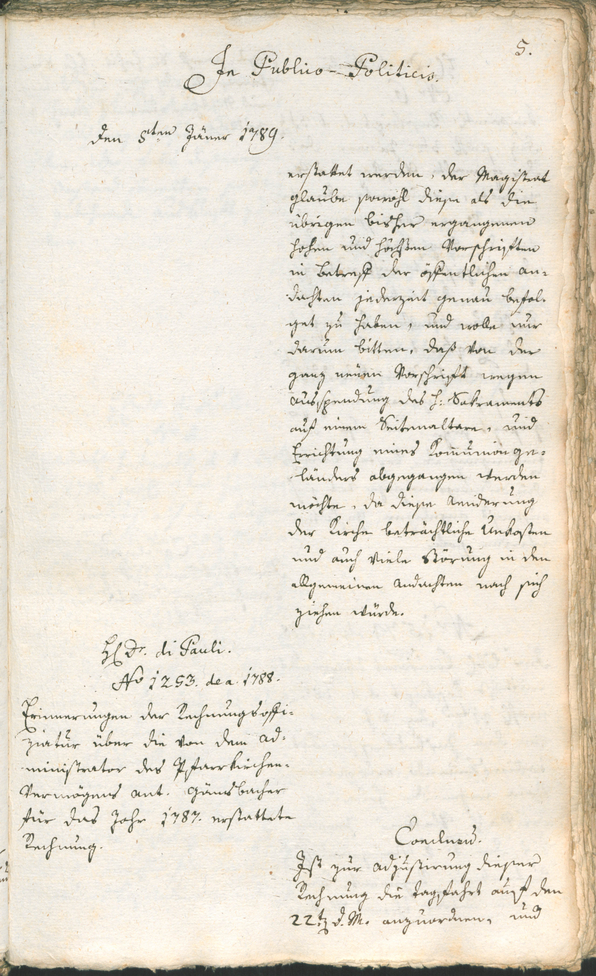 5.
In Publico-Politicis.
den 8ten Jäner 1789.
erstattet werden, der Magistrat
glaube sowohl diese als die
übrigen bisher ergangenen
hohen und höchsten Vorschriften
in betreff der öffentlichen An-
dachten jederzeit genau befol-
get zu haben, und wolle nur
darum bitten, daß von der
ganz neuen Vorschrift wegen
Ausspendung des h: Sakraments
auf einem Seitenaltare, und
Errichtung eines Kommunionge-
länders abgegangen werden
möchte, da diese Aenderung
der Kirche beträchtliche Unkosten
und auch viele Störung in den
allgemeinen Andachten nach sich
ziehen würde.
H. Dr. di Pauli.
No 1253. de a. 1788.
Erinnerungen der Rechnungsoffi-
ziatur über die von dem Ad-
ministrator des Pfarrkirchen-
Vermögens Ant. Gänsbacher
für das Jahr 1787. erstattete
Rechnung.
Conclusu.
Ist zur Adjustirung dieser
Rechnung die Tagfahrt auf den
22t d. M. anzuordnen, und